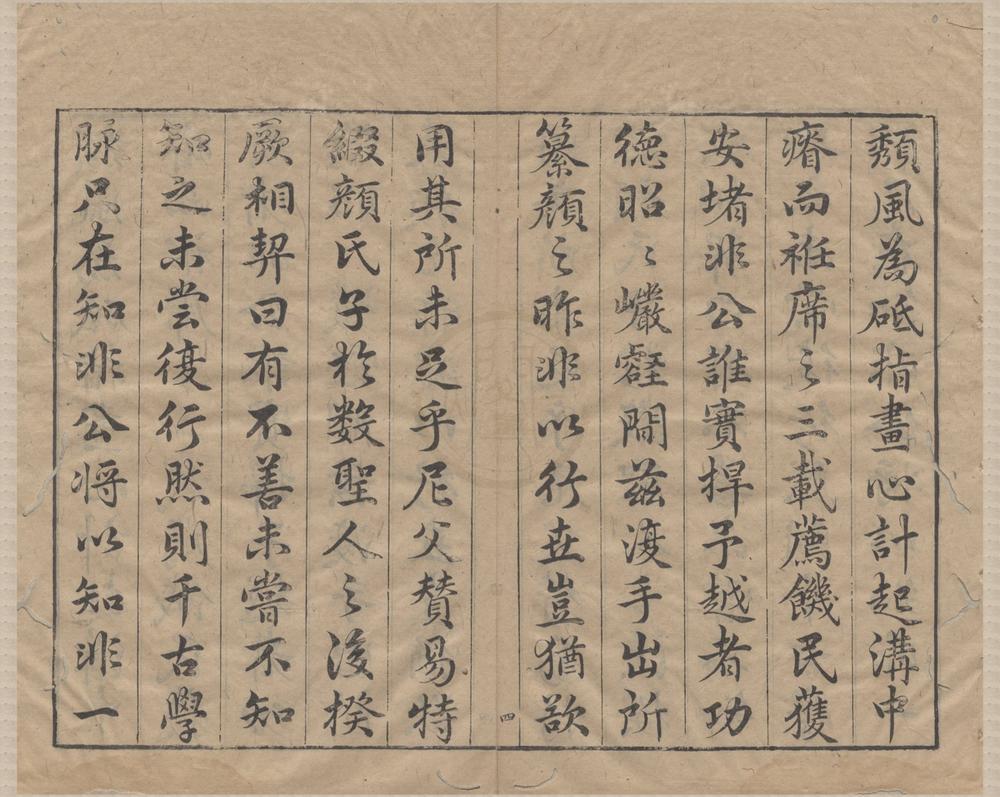 頹風為砥指畫心計起溝中
瘠而袵席之三載薦饑民獲
安堵非公誰實捍予越者功
德昭々巗壑間茲復手出所
纂顏之昨非以行世豈猶欲
四
用其所未足乎尼父贊易特
綴顏氏子於數聖人之後揆
厥相契曰有不善未嘗不知
知之未嘗復行然則千古學
脉只在知非公將以知非一